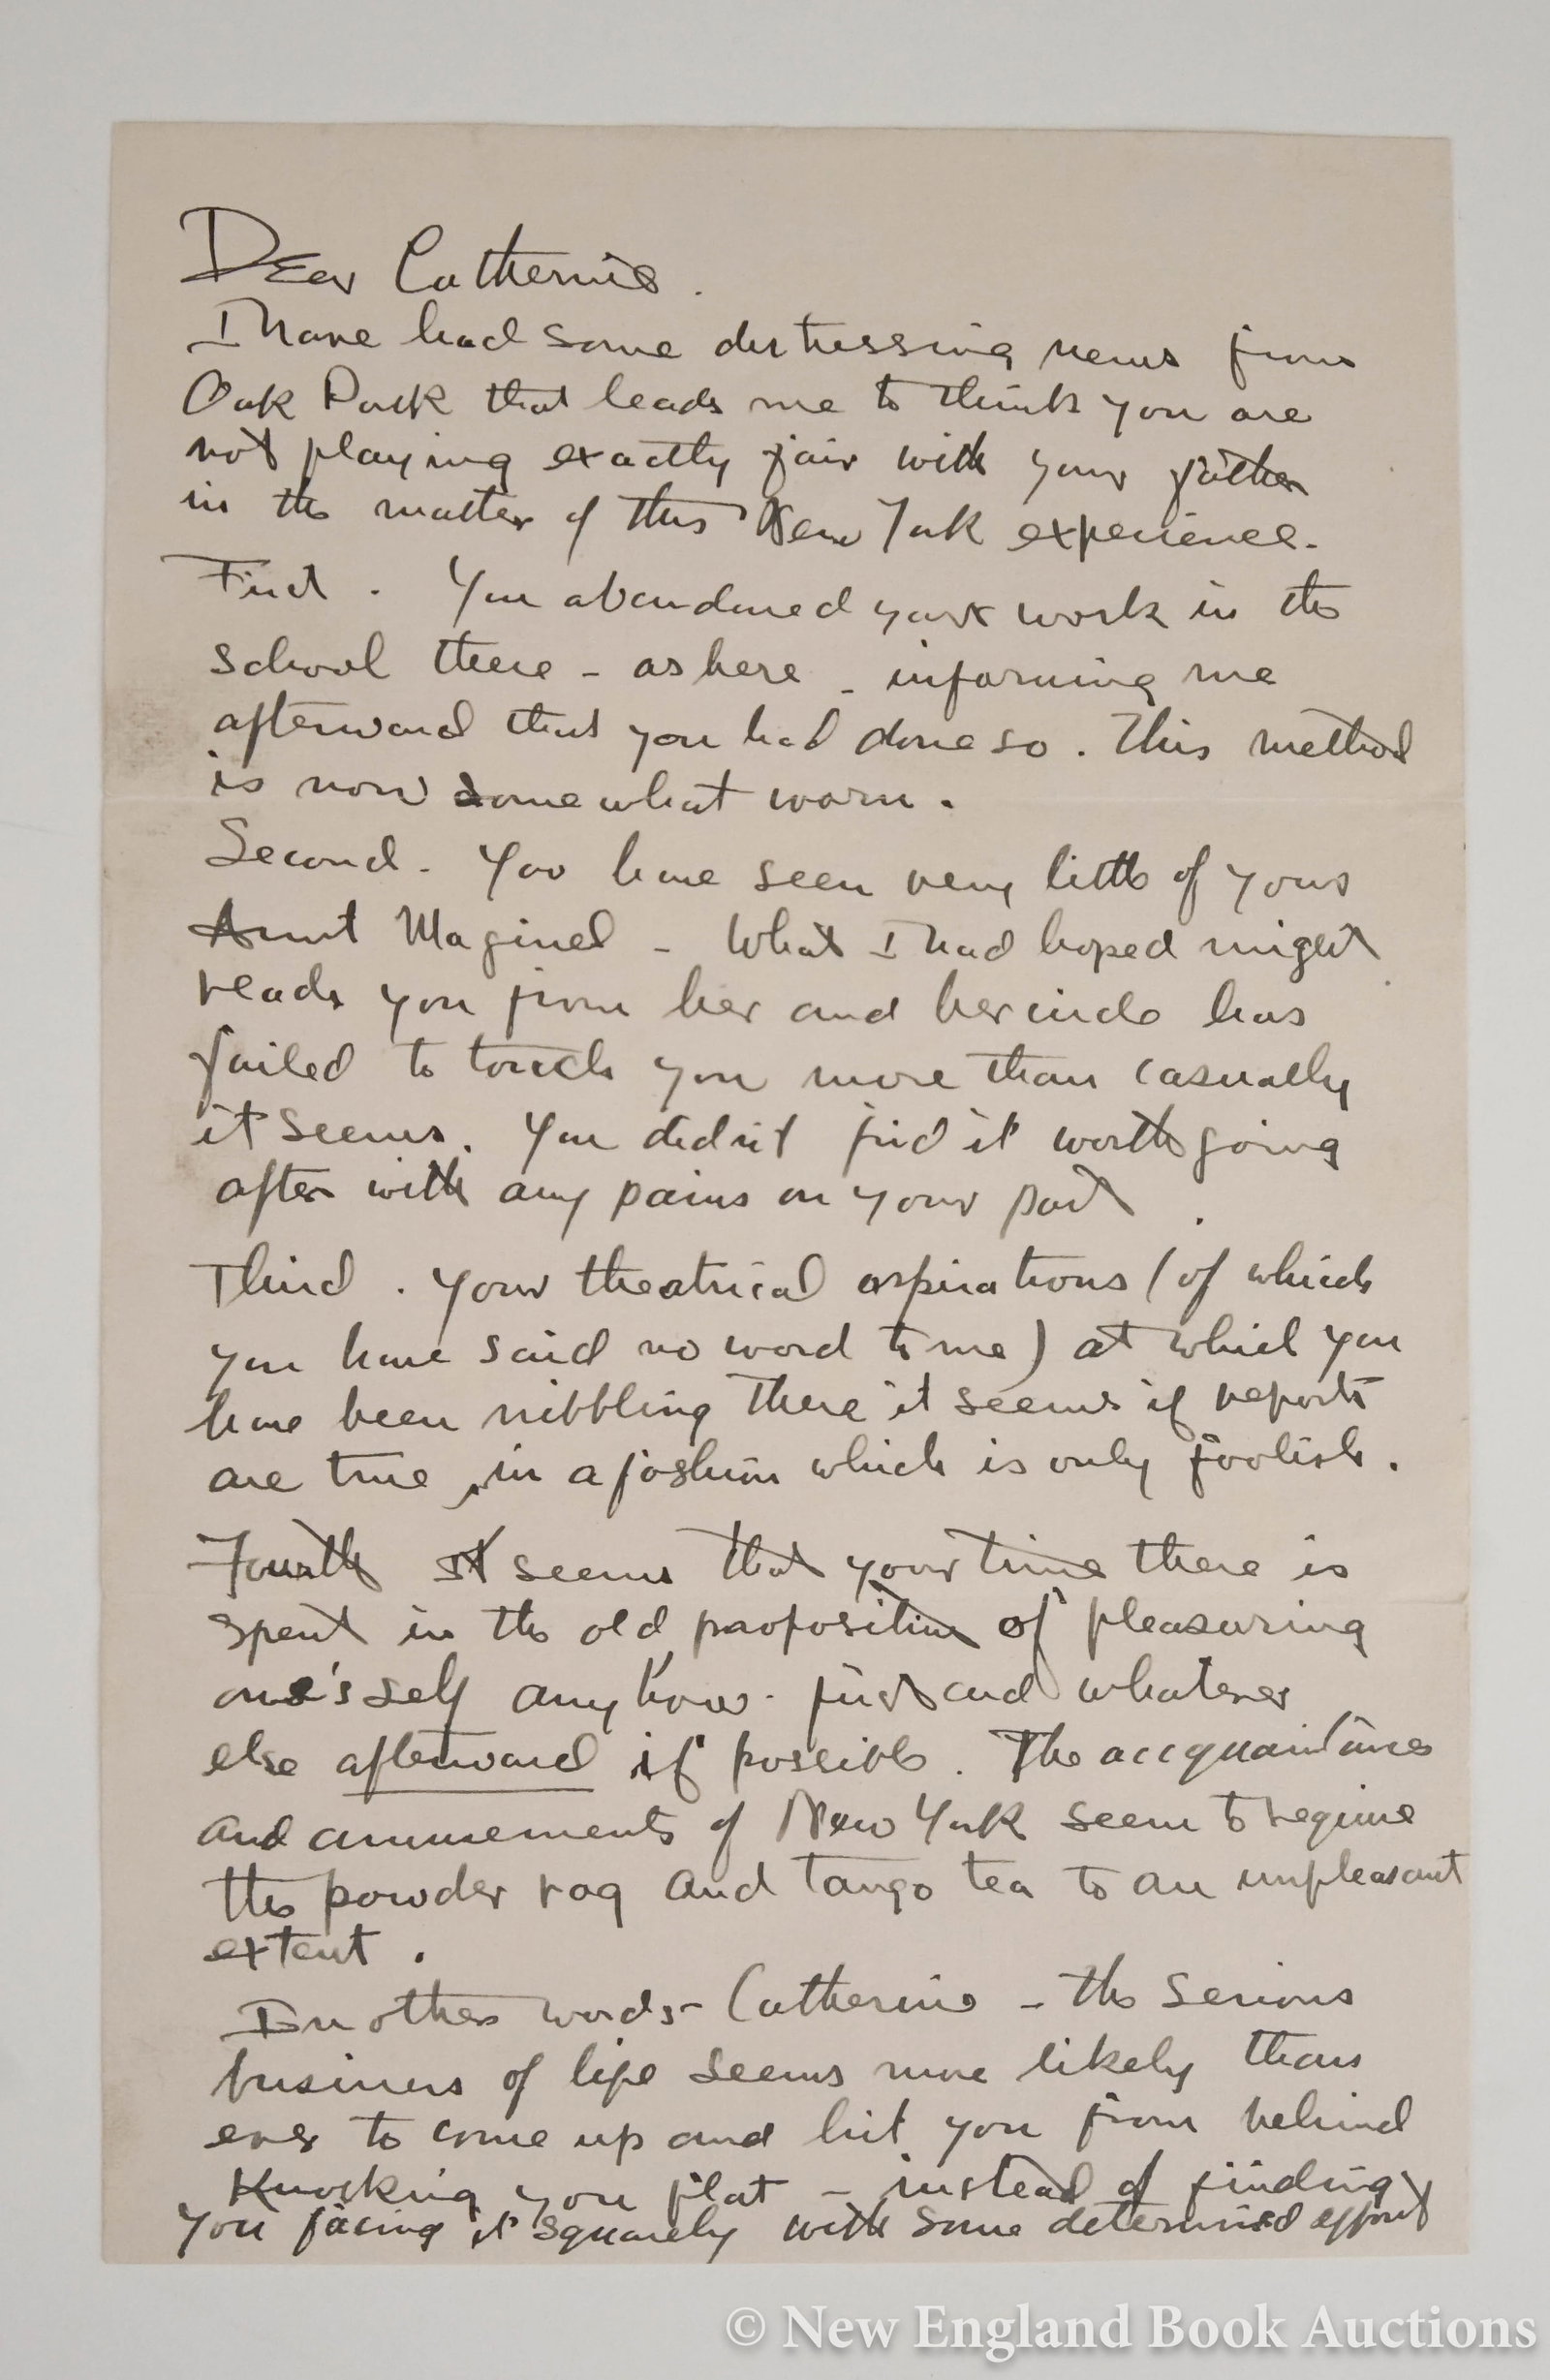 Dear Catherine.
I have had some distressing news from
Oak Park that leads me to think you are
not playing exactly fair with your father
in the matter of this New York experience.
First. You abandoned your work in the
school there - as here - informing me
afterward that you had done so. This method
is now somewhat worn.
Second. You have seen very little of your
Aunt Maginel - What I had hoped might
reach you from her and her circle has
failed to touch you more than casually
it seems. You didn't find it worth going
after with any pains on your part.
Third. Your theatrical aspirations (of which
you have said no word to me) at which you
have been nibbling there it seems if reports
are true, in a fashion which is only foolish.
Fourth It seems that your time there is
spent in the old proposition of pleasuring
one's self anyhow - first and whatever
else afterward if possible. The accquaintances
and amusements of New York seem to require
the powder rag and tango tea to an unpleasant
extent.
In other words - Catherine - the serious
business of life seems more likely than
ever to come up and hit you from behind
Knocking you flat - instead of finding
you facing it squarely with some determined effort
© New England Book Auctions